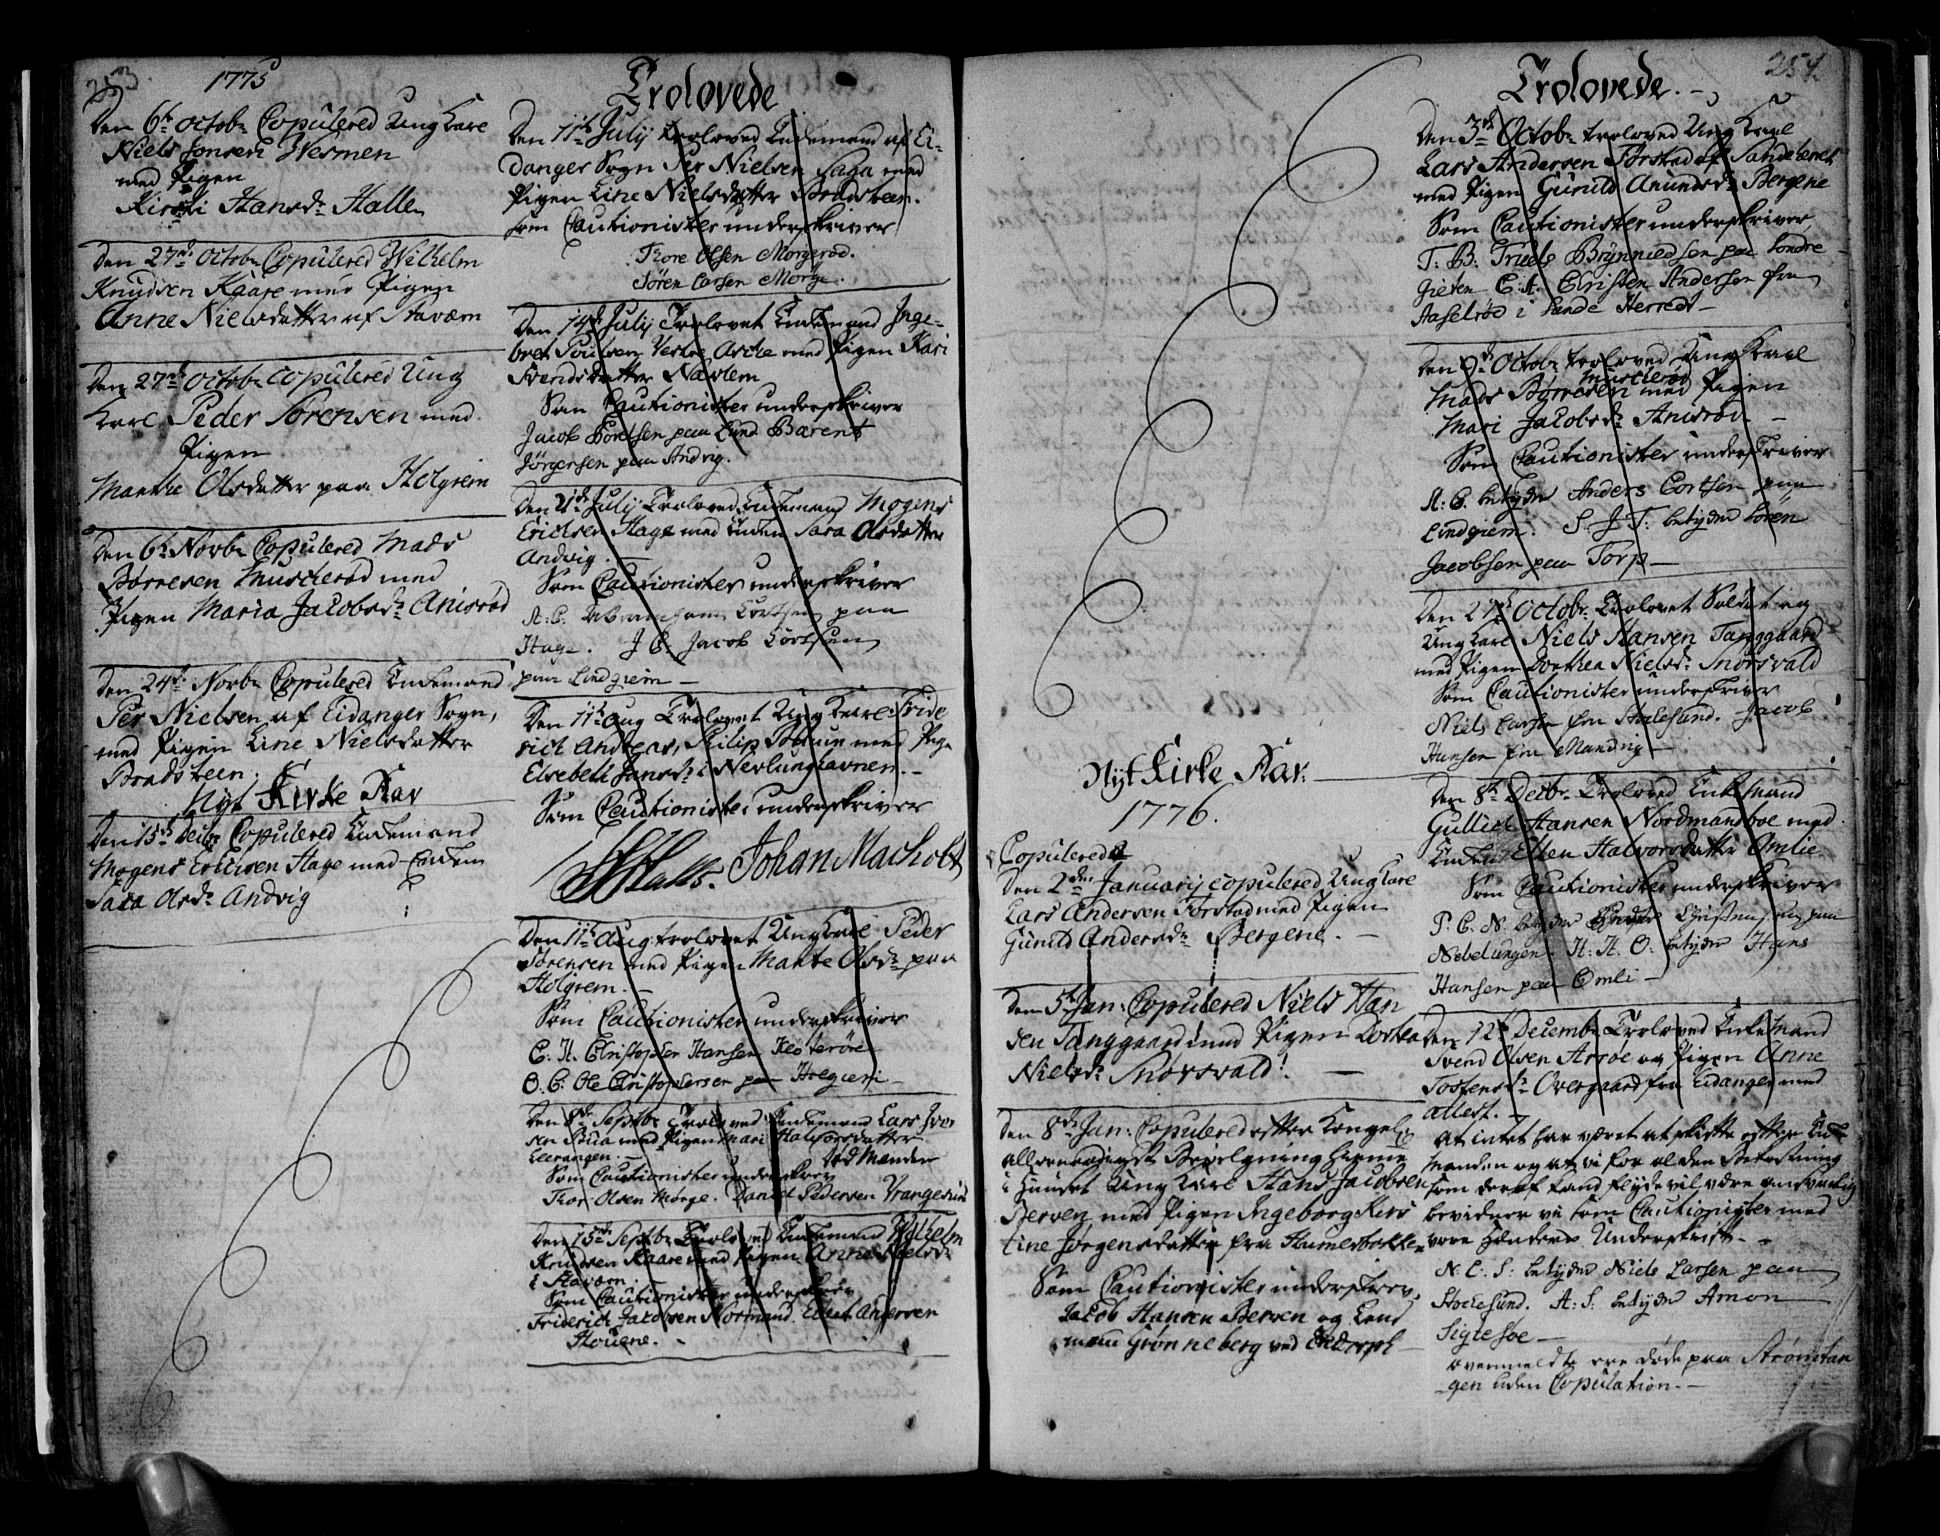 253
1775
Den 6te octobr Copulered Ung Karl
Niels Jonsen Wesmen
med Pigen
Kirsti Hansdr Halle
Den 27de Octobr Copulered Wilhelm
Knudsen Kaase med Pigen
Anne Nielsdatter af Staværen
Den 27de Octobr copulered Ung
Karl Peder Sørensen med
Pigen
Marthe Olsdatter paa Helgrem
Den 6te Novbr Copulered Mads
Børresen Muscherød med
Pigen Maria Jacobsdr Anisrød
Den 24de Novbr Copulered Enkemand
Per Nielsen af Eidanger Sogn,
med Pigen Line Nielsdatter
Bradsteen.
Nyt Kirke Aar
Den 15de Decbr Copulered Enkemand
Mogens Erichsen Hage med Enken
Sara Olsdr Andvig
Trolovede
Den 11te July Troloved Enkemand af Ei-
danger Sogn Per Nielsen Saga med
Pigen Line Nielsdatter Bradsteen.
som Cautionister underskriver
Thore Olsen Morgerød.
Sören Larsen Morge.
Den 14de July Trolovet Enkemand Inge-
bret Poulsen Vestre Aske med Pigen Kari
Svendsdatter Nævlem
Som Cautionister underskriver
Jacob Cortsen paa Lund Barent
Jörgensen paa Andvig.
Den 21de July Troloved Enkemand Mogens
Erichsen Hage med Enken Sara Olsdatter
Andvig.
Som Cautionister underskriver
A: C. Abraham Cortsen paa
Hage. J C. Jacob Cortsen
paa Lindgiem
Den 11te Aug Trolovet Ung Karl Fride
rich Andreas Philip med Pigen
Elsebeth Jansdr i Nevlunghavnen.
Som Cautionister underskriver
Johan Macholt
Den 11te Aug: trolovet Ung Karl Peder
Sörensen med Pigen Marte Olsdr paa
Holgrem.
Som Cautionister underskriver
C. H. Christopher Hansen
O. C. Ole Christophersen paa Holgiem
Den 8de Septbr Troloved Enkemand Lars Iver
sen med Pigen Mari Halvorsdatter
Leerangen.
Som Cautionister underskrev
Thor Olsen Morge. Daniel Pedersen
Den 15de Septbr Troloved Enkemand Wilhelm
Knudsen Kaase med Pigen Anne Nielsdr
i Staværn.
Som Cautionister underskrev
Friderich Jacobsen Normand. Andersen
Houene.
Nyt Kirke Aar.
1776.
Copulerede
Den 2den Januarij copulered Ung Karl
Lars Andersen Förstad med Pigen
Gunild Andersdr Bergene.
Den 5te Jan: Copulered Niels Han
sen Tanggaard med Pigen Dorthea
Nielsdr Snörsvald.
Den 8de Jan: Copulered efter Kongel:
allernaadigst Bevilgning hiemme
i Huuset Ung Karl Hans Jacobsen
Berven med Pigen Ingeborg Kirs
tine Jörgensdatter fra Humerbakken
Som Cautionister underskrev,
Jacob Hansen Berven og Lens
mand Grönneberg ved
254
Trolovede.
Den 3de Octobr troloved Ung Karl
Lars Andersen Förstad af Sandeherret
med Pigen Gunild Anundsdr Bergene
Som Cautionister underskriver,
T. B. Truels Brynnildsen paa Söndre
Gieten C. A. Christen Andersen fra
Haselröd i Sande Herred
Den 9de Octobr troloved Ung Karl
Muscherød
Mads Börresen med Pigen
Mari Jacobsdr Anisröd.
Som Cautionister underskriver
A: C. betyder Anders Cortsen paa
Lindgiem. S. J S: betyder Sören
Jacobsen paa Torp
Den 27de Octobr: Trolovet Soldat og
Ung Karl Niels Hansen Tanggaard
med Pigen Dorthea Nielsdr Snörsvald
Som Cautionister underskriver
Niels Larsen fra Stolesund. Jacob
Hansen fra Manvig
Den 8de Decbr. Troloved Enkemand
Gullich Hansen Nordmansboe med
Enken Ellen Halvorsdatter Omlie.
Som Cautionister underskriver
P. C. N. betyder Christensen paa
Nebelungen. H. H. O. betyder Hans
Hansen paa Omli
Den 12te Decembr Troloved Enkemand
Svend Olsen Arröe og Pigen Anne
Tostensdr Overgaard fra Eidanger med
attest.
At intet har været at skifte efter Enke
manden og at vi for al den Bekostning
som deraf kand flyde vil være ansvarlig
bevidner vi som Cautionister med
vore Hænders Underskrift.
N. L. S: betyder Niels Larsen paa
Stolesund. A: S: betyder Amon
Sigtesöe
ovenmeldte ere döde paa Strömtan
gen uden Copulation.